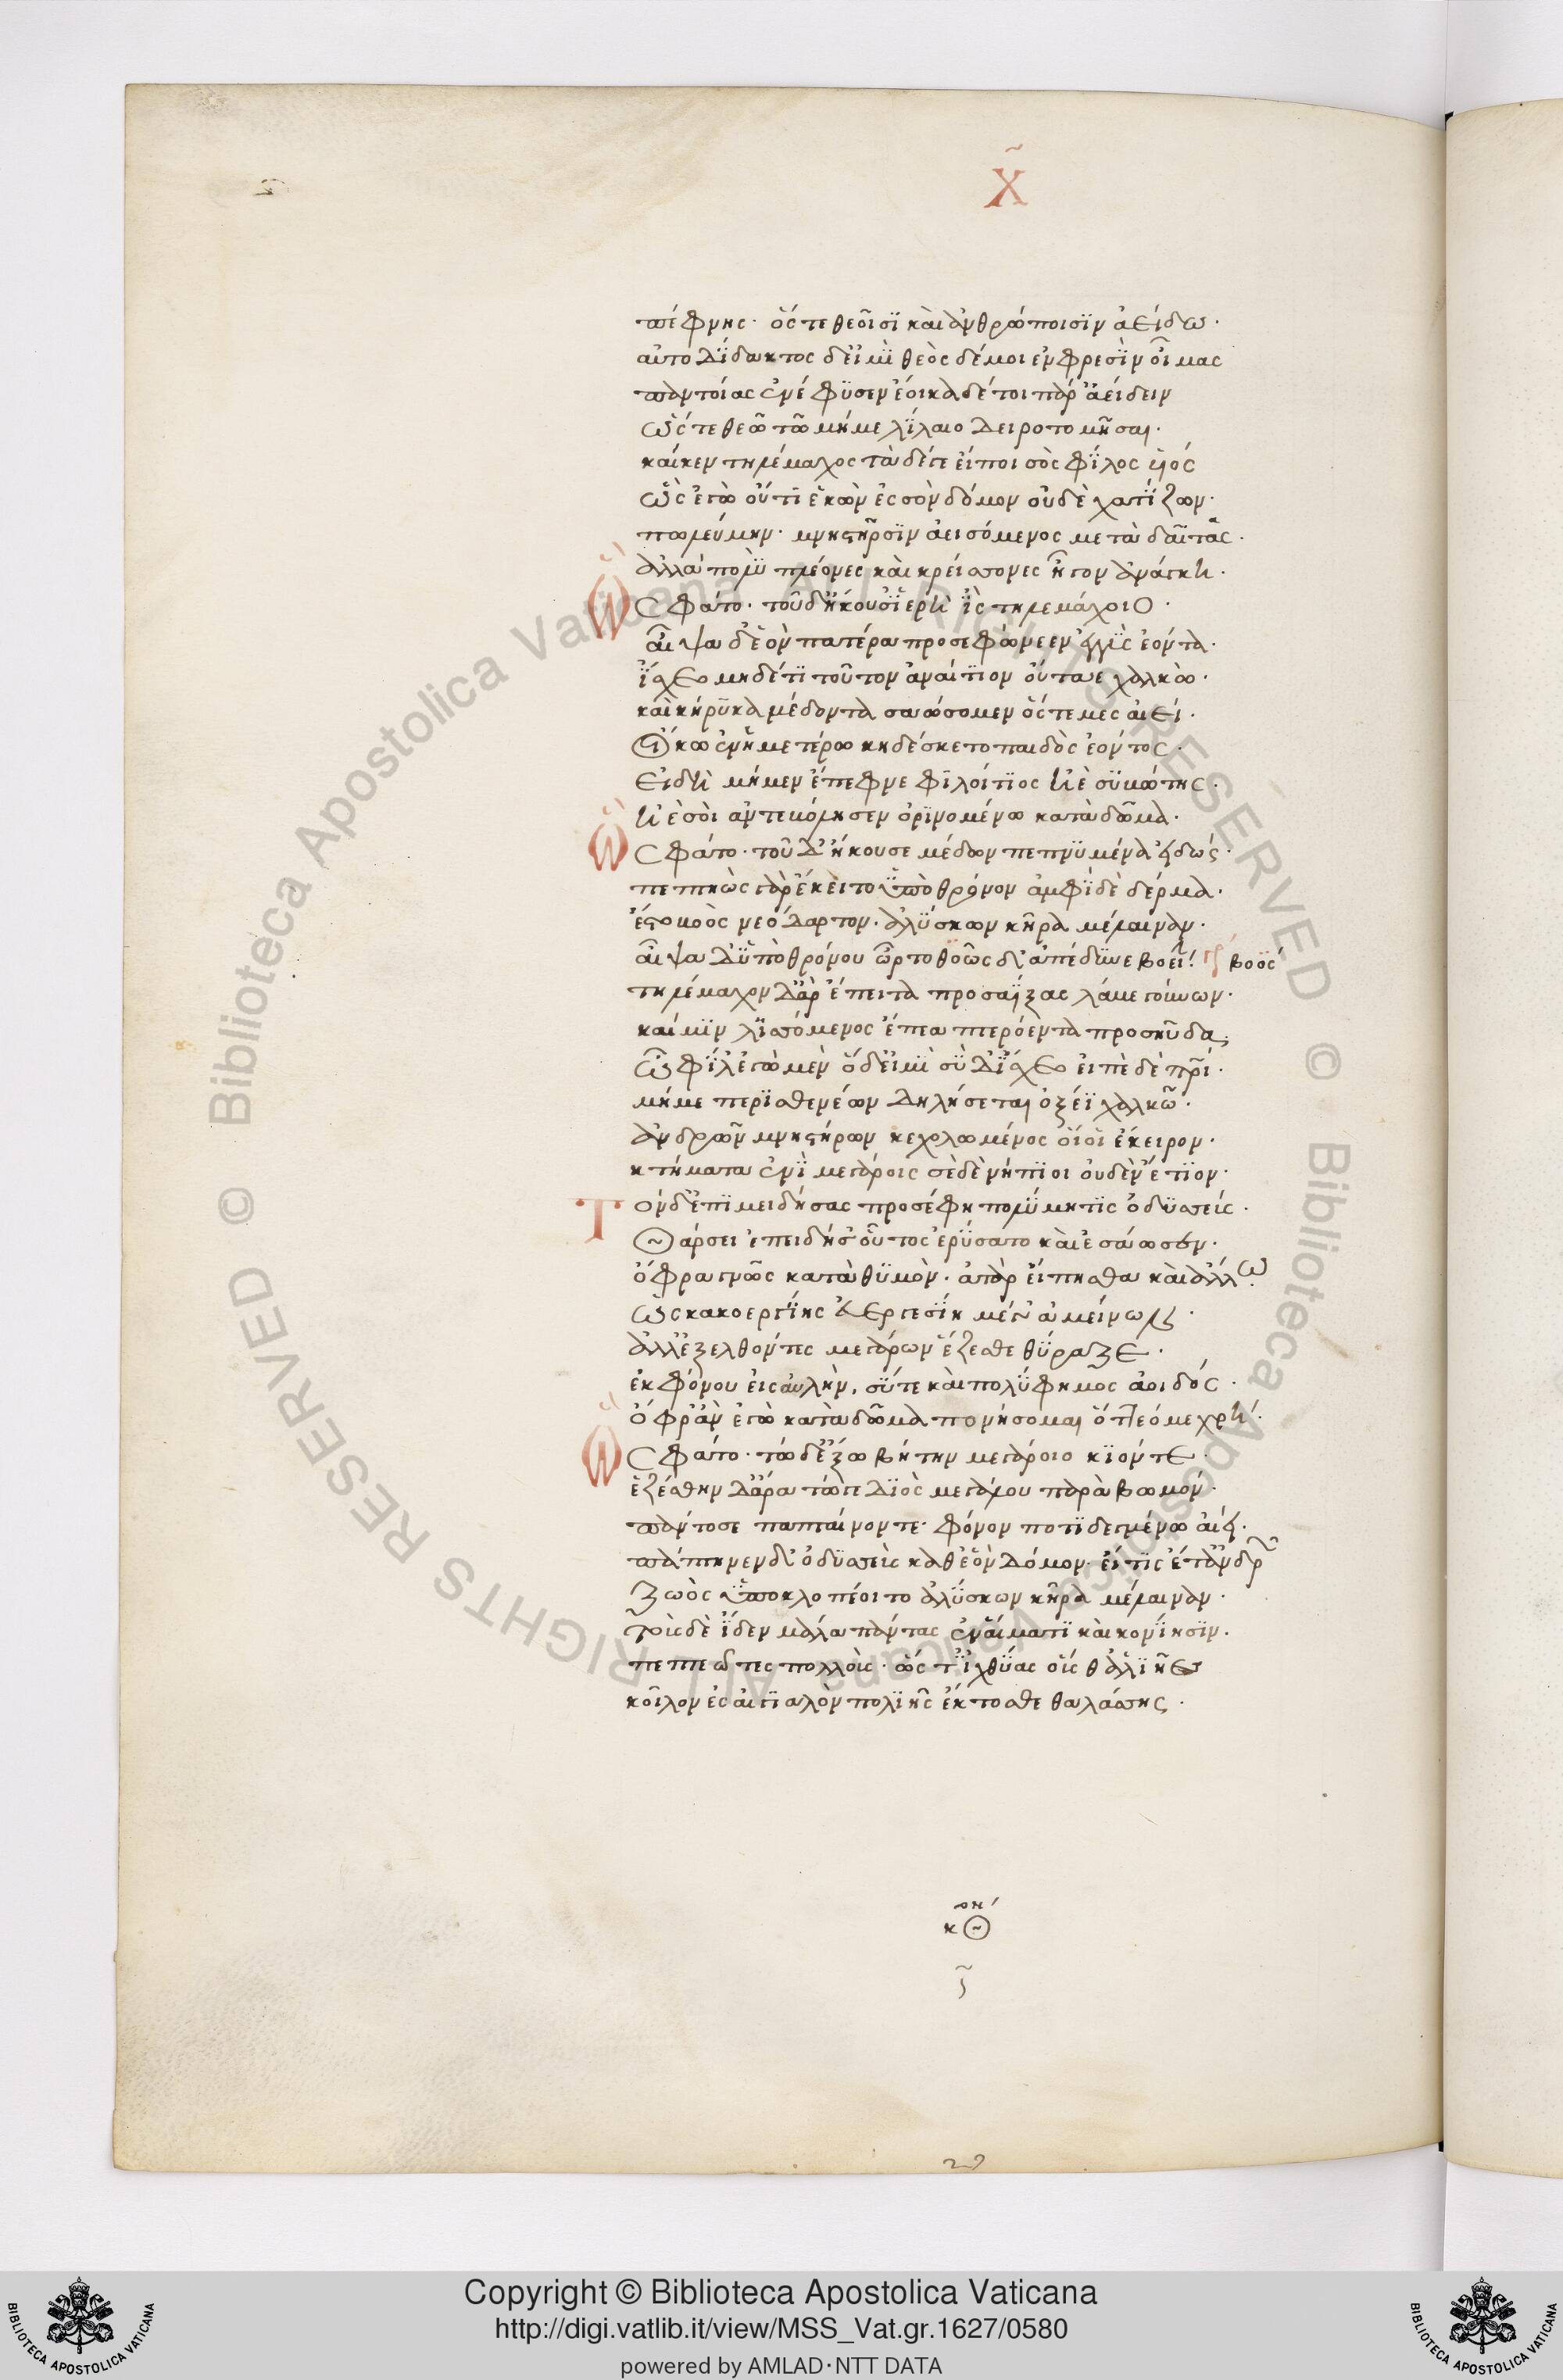 Χ
πέφνης· ὅς τε θεοῖσι καὶ ἀνθρώποισιν ἀείδω·
αὐτοδίδακτος δ' εἰμὶ θεὸς δέ μοι ἐν φρεσὶν οἴμας
παντοίας ἐνέφυσεν ἔοικα δέ τοι παρ' ἀείδειν
ὥς τε θεῶ τῶ μή με λιλαίο δειροτομῆσαι·
καί κεν τηλέμαχος τά δέ γε εἴποι σὸς φίλος υἱός
ὡς ἐγὼ οὔτι ἑκὼν ἐς σὸν δόμον οὐδὲ χατίζων·
πωλεύμην· μνηστῆρσιν ἀεισόμενος μετὰ δαῖτας·
ἀλλὰ πολὺ πλέονες καὶ κρείσσονες ἦγον ἀνάγκη·
Ὣς φάτο· τοῦ δ' ἤκουσ' ἱερὴ ἲς τηλεμάχοιο·
αἶψα δ' ἑὸν πατέρα προσεφώνεεν ἐγγὺς ἐόντα·
ἴσχεο μηδέ τι τοῦτον ἀναίτιον οὔταε χαλκῶ·
καὶ κήρυκα μέδοντα σαώσομεν ὅς τέ μευ αἰεί·
οἴκω ἐν ἡμετέρω κηδέσκετο παιδὸς ἐόντος·
εἰ δὴ μή μιν ἔπεφνε φιλοίτιος ἠὲ συβώτης·
ἠὲ σοὶ ἀντεβόλησεν ὀρινομένω κατὰ δῶμα·
Ὣς φάτο· τοῦ δ' ἤκουσε μέδων πεπνυμένα εἰδώς·
πεπτηὼς γὰρ ἔκειτο ὑπὸ θρόνον ἀμφὶ δὲ δέρμα·
ἕστο βοὸς νεόδαρτον· ἀλύσκων κῆρα μέλαιναν·
αἶψα δ' ὑπὸ θρόνου ὦρτο θοῶς δ' ἀπέδυνε βοείην· γρ βοός
τηλέμαχον δ' ἄρ' ἔπειτα προσαΐξας λάβε γούνων·
καί μιν λισσόμενος ἔπεα πτερόεντα προσηύδα
ὦ φίλ' ἐγὼ μὲν ὅδ' εἰμὶ σὺ δ' ἴσχεο εἰπὲ δὲ πατρί·
μή με περισθενέων δηλήσεται ὀξέϊ χαλκῶ·
ἀνδρῶν μνηστήρων κεχολωμένος οἵ οἱ ἔκειρον·
κτήματα ἐνὶ μεγάροις σὲ δὲ νήπιοι οὐδὲν ἔτιον·
Τὸν δ' ἐπιμειδήσας προσέφη πολύμητις ὀδυσσεύς·
θάρσει ἐπειδή σ' οὗτος ἐρύσατο καὶ ἐσάωσεν·
ὄφρα γνῶς κατὰ θυμὸν· ἀτὰρ εἴπησθα καὶ ἄλλω·
ὡς κακοεργίης εὐεργεσίη μέγ' ἀμείνων·
ἀλλ' ἐξελθόντες μεγάρων ἕζεσθε θύραζε·
ἐκ φόνου εἰς αὐλὴν, σύ τε καὶ πολύφημος ἀοιδός·
ὄφρ' ἂν ἐγὼ κατὰ δῶμα πονήσομαι ὅττεό με χρή·
Ὣς φάτο· τὼ δ' ἔξω βήτην μεγάροιο κιόντε·
ἑζέσθην δ' ἄρα τώ γε διὸς μεγάλου παρὰ βωμόν·
πάντοσε παπταίνοντε· φόνον ποτιδεγμένω αἰεί·
πάπτηνεν δ' ὀδυσσεὺς καθ' ἑὸν δόμον· εἴ τις ἔτ' ἀνδρῶν
ζωὸς ὑποκλοπέοιτο ἀλύσκων κῆρα μέλαιναν·
τοὺς δὲ ἴδεν μάλα πάντας ἐν αἵματι καὶ κονίησιν·
πεπτεῶτας πολλοὺς· ὥς τ' ἰχθύας οὕς θ' ἁλιῆες
κοῖλον ἐς αἰγιαλὸν πολιῆς ἔκτοσθε θαλάσσης·
Copyright © Biblioteca Apostolica Vaticana
http://digi.vatlib.it/view/MSS_Vat.gr.1627/0580
powered by AMLAD·NTT DATA